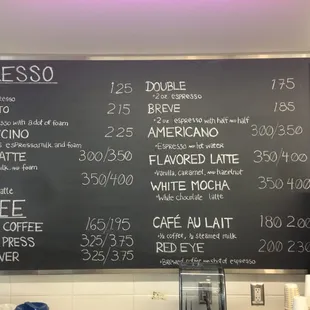 ESSO
1.25
espresso
TO 2.15
esso with a dot of foam
CINO 2.25
espresso, milk, and foam
ATTE 300/350
milk, no foam
350/400
latte
EE
COFFEE 165/195
PRESS 325/375
VER 325/375
DOUBLE 175
•2 oz. espresso
BREVE 185
•2 oz. espresso with half n half
AMERICANO 300/350
Espresso and hot water
FLAVORED LATTE 350/400
•Vanilla, caramel, and hazelnut
WHITE MOCHA 350 400
•White chocolate latte
CAFÉ AU LAIT 180 20
½ coffee, ½ steamed milk
RED EYE 200 230
•Brewed coffee w/shot of espresso